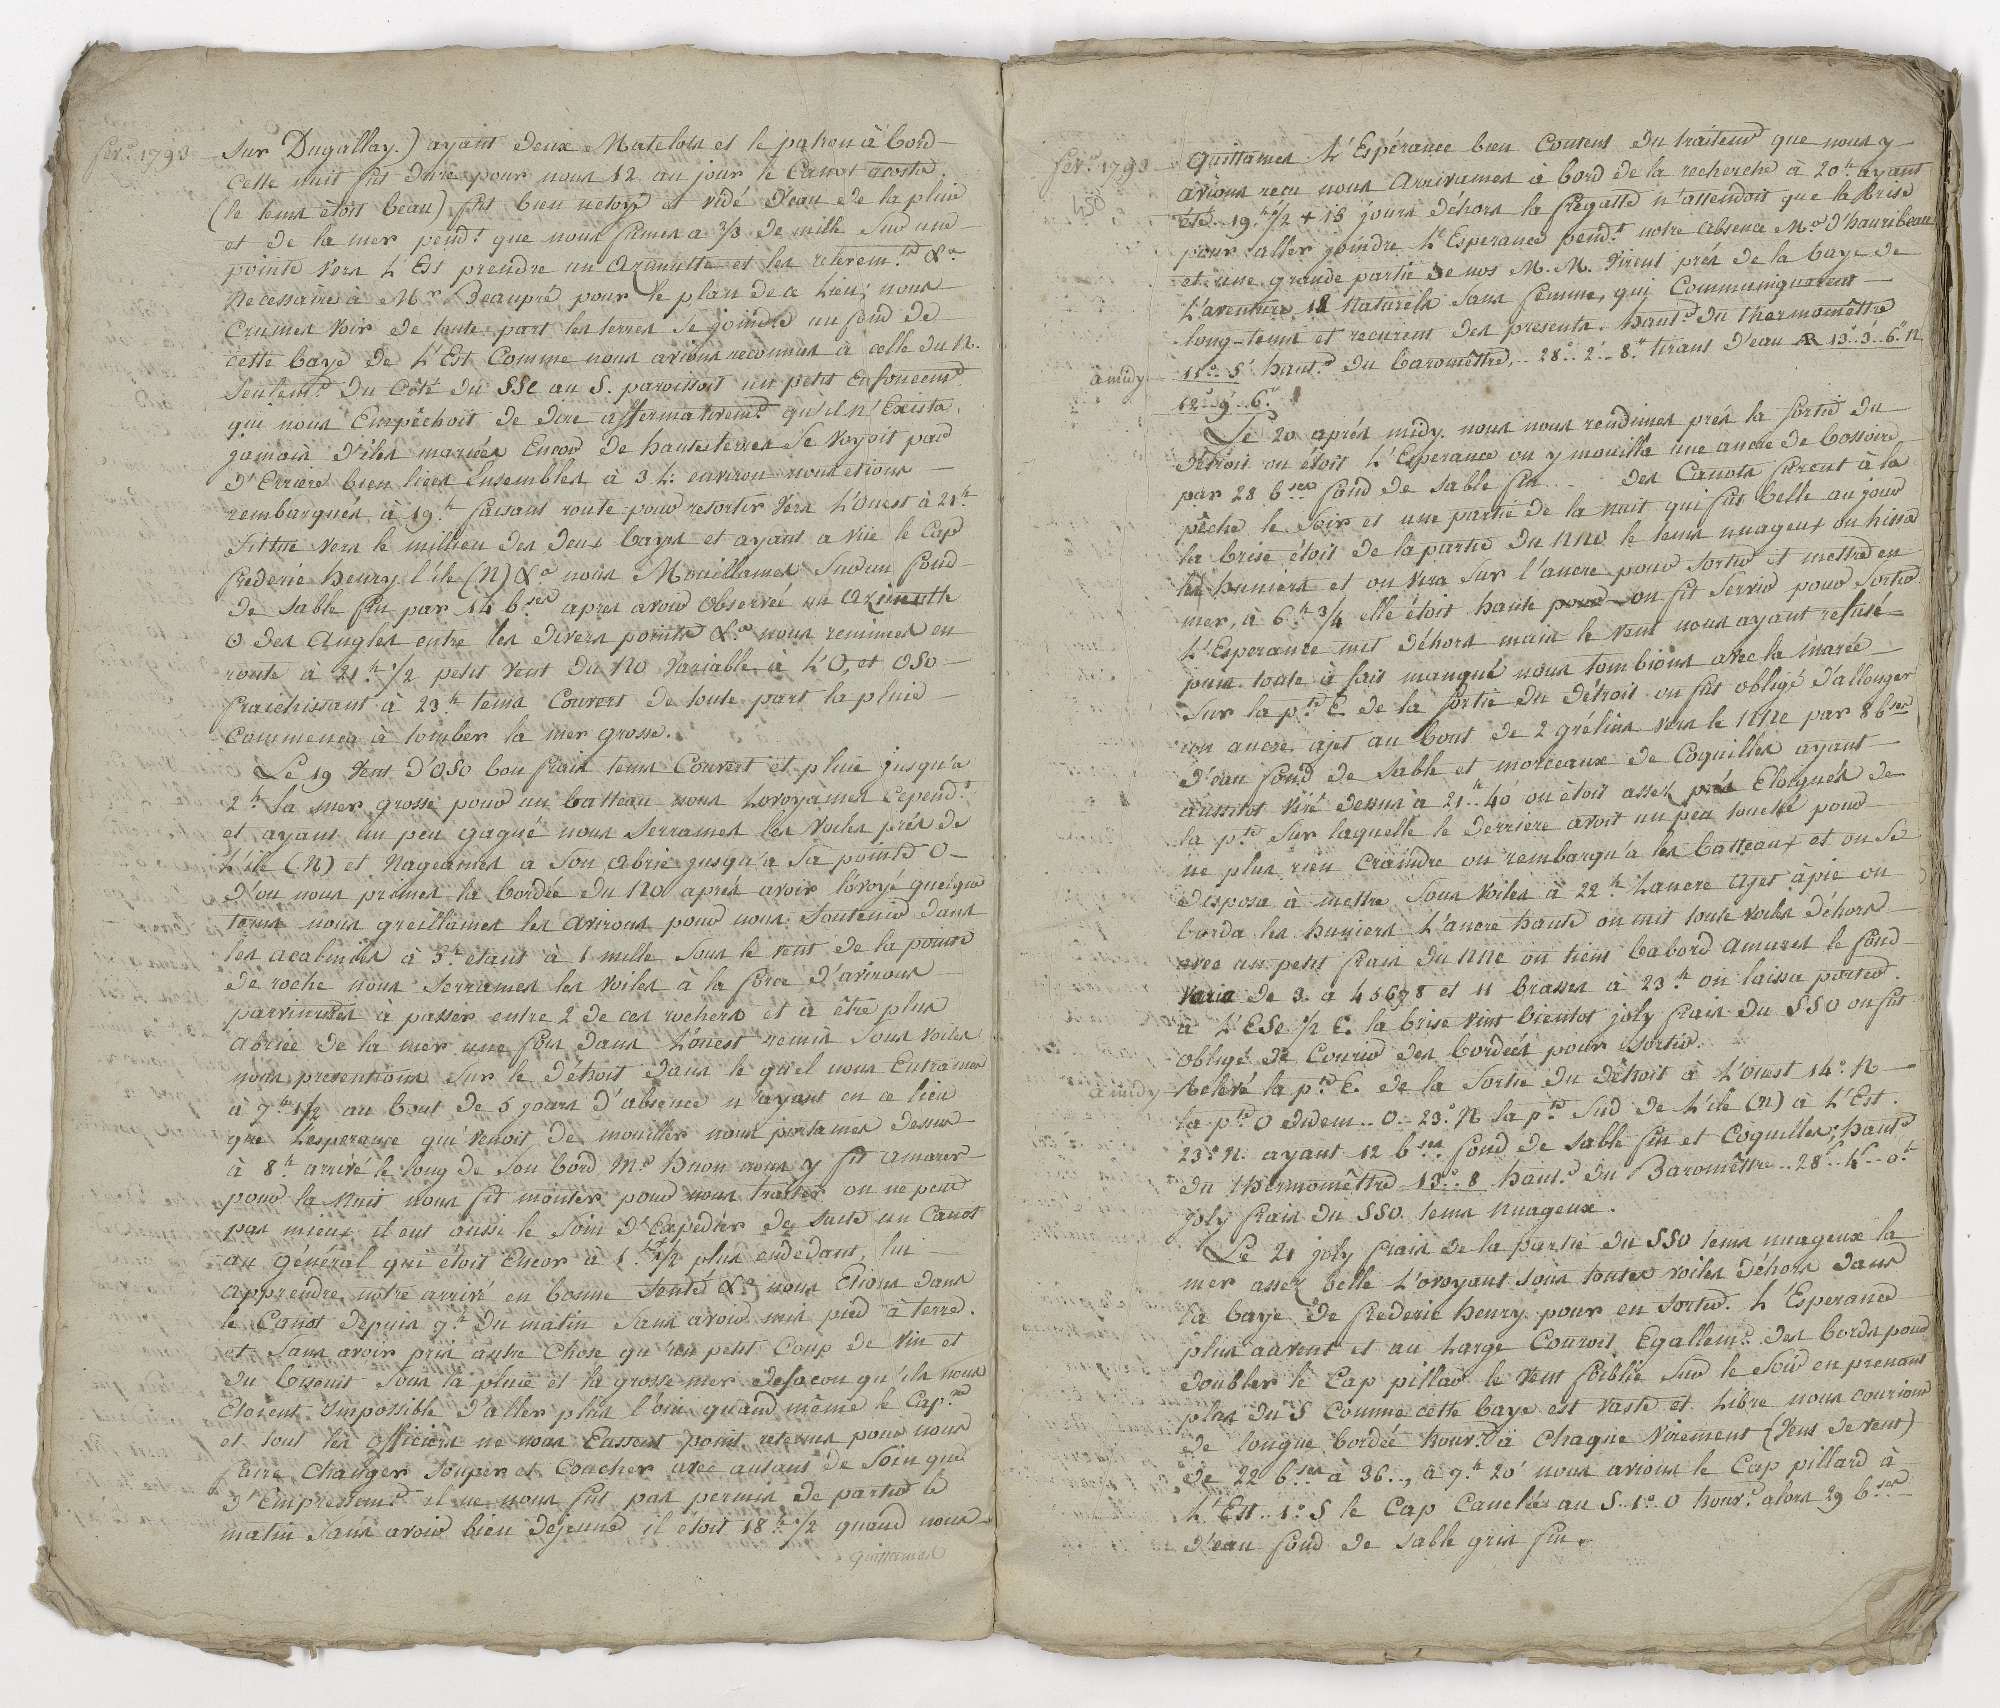 fev.r 1793
sur Dugallay.) ayant deux Matelots et le patron à bord
cette nuit fut dure pour nous 12 au jour le Canot acosté
(le tems étoit beau) fut bien netoyé et vidé d'eau de la pluie
et de la mer pend.t que nous fumes a 2/3 de mille sud une
pointe vers L'Est prendre un azimutte et les relevem.ts &a
necessaire à Mr Beaupré pour le plan de ce Lieu, nous
crumes voir de toute part les terres se joindre au fond de
cette baye de L'Est Comme nous avions reconnus à celle du N.
seulem.t du Côté du SSE au S. paroissoit un petit enfoncem.t
qui nous Empêchoit de dire affermativem.t qu'il n'Exista
jamais d'iles mariées Encor de hautes terres se voyoit par
d'Erriere bien liées Ensembles à 3 L: environ nous etions
rembarqués à 19.h faisant route pour retortir vers L'Ouest à 21h
situé vers le millieu des deux bayes et ayant a vüe le Cap
frederic henry l'ile (N) &a nous Mouillames sur un fond
de sable fin par 14 b.ses apres avoir observée un azimuth
O des angles entre les divers points &a nous remimes en
route à 21.h 1/2 petit vent du NO variable à L'O, et OSO
fraichissant à 23.h tems Couvert de toute part la pluie
commença à tomber la mer grosse.
Le 19 Vent d'OSO bon frais tems Couvert et pluie jusqu'a
2.h la mer grosse pour un batteau nous Lovoyames Cepend.t
et ayant un peu gagné nous serrames les voiles près de
L'ile (N) et Nageames a son abrie jusqu'a sa pointe O
d'ou nous primes la bordée du NO aprés avoir lovoyé quelque
tems nous greillames les avirons pour nous soutenir dans
les acalmies à 5.h etant à 1 mille sous le vent de la pointe
de roche nous serrames les voiles à la force d'avirons
parvinmes à passer entre 2 de ces rochers et à être plus
abriée de la mer une fois dans L'ouest remis sous voiles
nous presentions sur le détroit dans le quel nous Entrames
à 7.h 1/2 au bout de 5 jours d'absence n'ayant en ce lieu
que L'esperance qui venoit de mouiller nous portames dessus
à 8.h arrivé le long de son bord M.r huon nous y fit amarer
pour la nuit nous fit monter pour nous traiter on ne peut
pas mieux il eut aussi le soin d'Expédier de suite un Canot
au général qui étoit Encor à 1.L 1/2 plus endedans, lui
apprendre notre arrivé en bonne santé &a nous Etions dans
le Canot depuis 7.h du matin sans avoir mis pied à terre.
et sans avoir pris autre chose qu'un petit Coup de vin et
du biscuit sous la pluie et la grosse mer defacon qu'ils nous
etoient impossible d'aller plus l'oin quand même le Cap.ne
et tout les officiers ne nous Eussent point retenus pour nous
faire changer souper et Coucher avec autant de soin que
d'Empressem.t il ne nous fut pas permis de partir le
matin sans avoir bien dejeuné il étoit 18.h 1/2 quand nous
quittames
fev.r 1793
450
quittames L'Espérance bien Contens du traitem.t que nous y
avions reçu nous Arrivames à bord de la recherche à 20.h ayant
été 19.h 1/2 + 15 jours déhors la fregatte n'attendoit que la brise
pour aller joindre L'Esperance pend.t notre absence M.r d'hauribeau
et une grande partie de nos M.M. virent prés de la baye de
L'aventure 18 Naturels sans femme, qui Communiquerent
long-tems et recurent des presents. haut.r du thermomêttre
à midy
15°.5' haut.r du baromêttre... 28°..2'..8." tirant d'eau AR 13°.3'.6." N
12°.9'.6."
Le 20 aprés midy nous nous rendimes prés la sortie du
Détroit ou étoit L'Esperance on y mouilla une ancre de bossoire
par 28 b.ses fond de sable fin... des Canots furent à la
pêche le soir et une partie de la nuit qui fut belle au jour
la brise étoit de la partie du NNO le tems nuageux on hissa
les huniers et on vira sur l'ancre pour sortir et mettre en
mer, à 6.h 3/4 elle étoit haute pour on fit servir pour sortir
L'Esperance mit déhors mais le vent nous ayant refusé
puis toute à fait manqué nous tombions avec la marée
sur la p.te E. de la sortie du détroit on fut obligé d'allonger
un ancre ajet au bout de 2 grélins vers le NNE par 8 b.ses
d'eau fond de sable et morceaux de Coquilles ayant
aussitot viré dessus à 21.h 40' on étoit assez près Eloignés de
la p.te sur laquelle le derriere avoit un peu touché pour
ne plus rien craindre on rembarqu'a les batteaux et on se
disposa à mettre sous voiles à 22.h Lancre ajet àpic on
borda les huniers L'ancre haute on mit toute voiles déhors
avec un petit frais du NNE on tient babord amures le fond
varia de 3. a 4 5 6 7 8 et 11 brasses à 23.h on laissa porter
à L'ESE 1/2 E. la brise vint bientot joly frais du SSO on fut
obligé de Courir des bordées pour sortir.
à midy
Relevé la p.te E. de la sortie du détroit à L'ouest 14°. N
la p.te O didem.. O.. 23°. N la p.te Sud de L'ile (N) à L'Est.
23°. N. ayant 12 b.ses fond de sable fin et Coquilles; haut.r
du thermomêttre 13°..8 haut.r du Baromêttre.. 28°..4'..0.h
joly frais du SSO. tems nuageux.
Le 21 joly frais de la partie du SSO tems nuageux la
mer assez belle L'ovoyant sous toutes voiles déhors dans
la baye de frederic henry pour en sortir. L'Esperance
plus auvent et au Large Couroit Egallem.t des bords pour
doubler le Cap pillar le vent foiblie sur le soir en prenant
plus du S Comme cette baye est vaste et Libre nous courions
de longue bordée trouv.t à chaque virement (vent devent)
de 22 b.ses à 36.., à 7.h 20' nous avions le Cap pillard à
L'Est..1°. S le Cap Canelée au S. 1°. O trouv.t alors 29 b.ses
d'eau fond de sable gris fin.